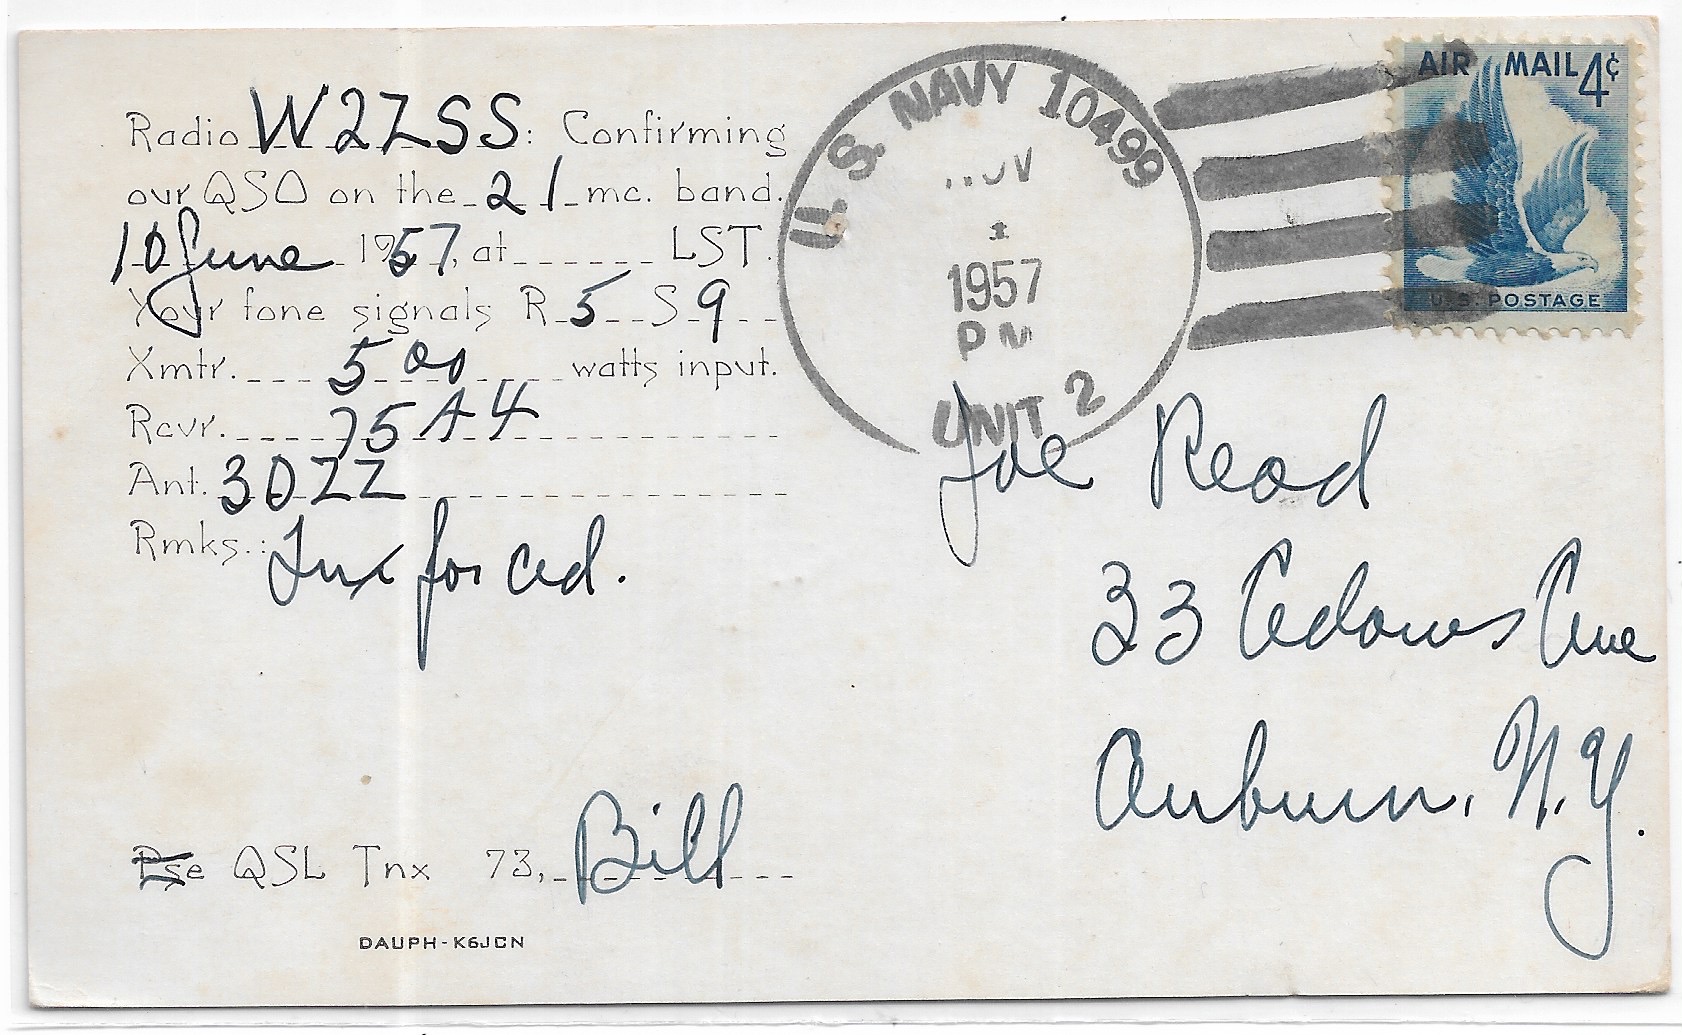 Radio W2ZSS: Confirming
our QSO on the 21 mc. band.
10 June 1957, at ______ LST.
Your fone signals R 5 S 9
Xmtr. 500 watts input.
Rcvr. 75A4
Ant. 3DZZ
Rmks.: Tnx for cd.
Pse QSL Tnx 73, Bill
DAUPH-K6JCN
U.S. NAVY 10499
NOV
1
1957
PM
UNIT 2
AIR MAIL 4¢
U.S. POSTAGE
Joe Read
33 Adams Ave
Auburn, N.Y.